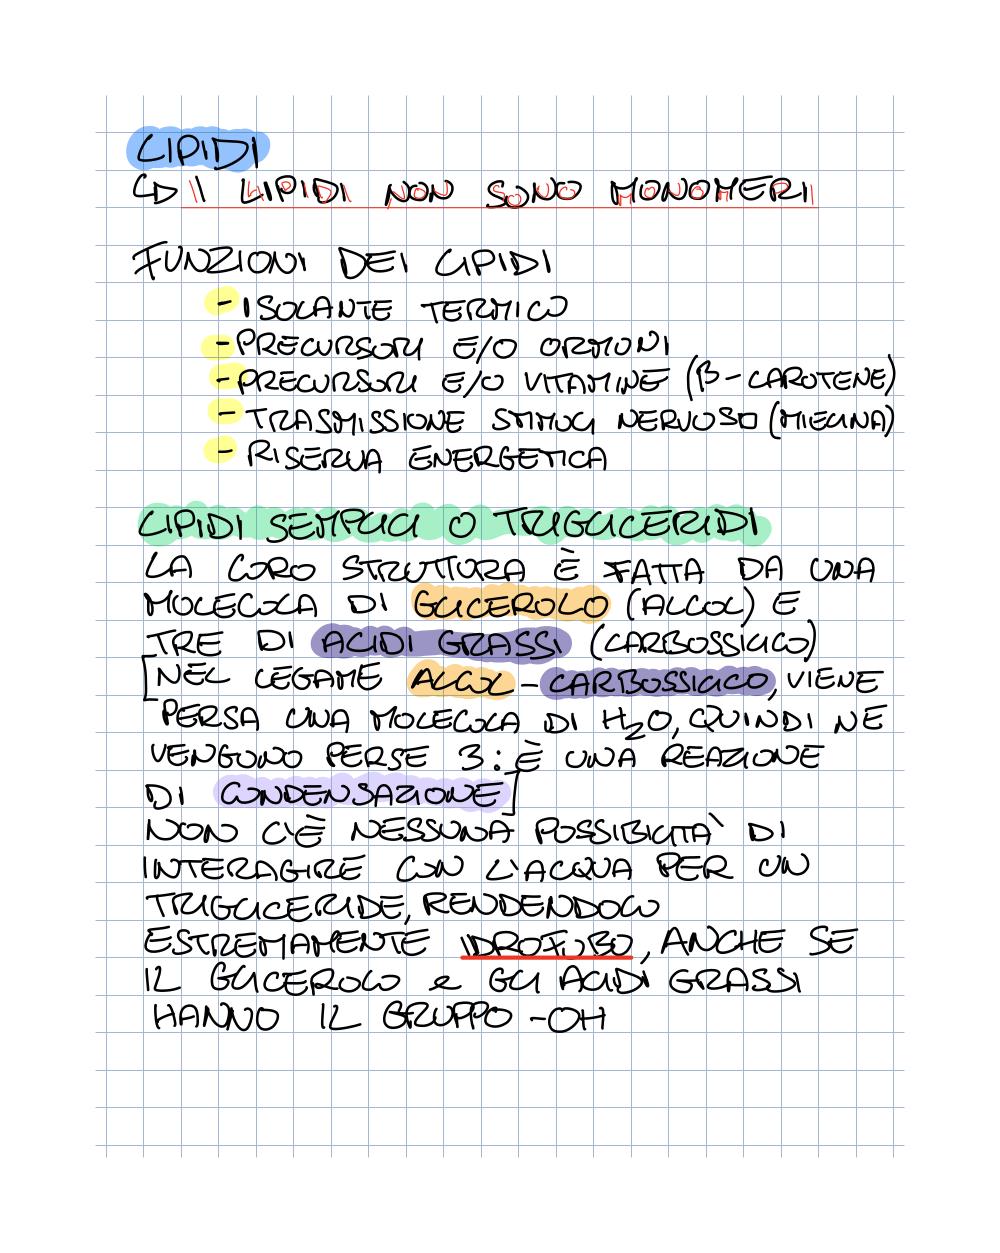 LIPIDI
I LIPIDI NON SONO MONOMERI
FUNZIONI DEI LIPIDI
- ISOLANTE TERMICO
- PRECURSORI E/O ORMONI
- PRECURSORI E/O VITAMINE (β-CAROTENE)
- TRASMISSIONE STIMOLI NERVOSO (MIELINA)
- RISERVA ENERGETICA
LIPIDI SEMPLICI O TRIGLICERIDI
LA LORO STRUTTURA È FATTA DA UNA
MOLECOLA DI GLICEROLO (ALCOL) E
TRE DI ACIDI GRASSI (CARBOSSILICO)
[NEL LEGAME ALCOL-CARBOSSILICO, VIENE
PERSA UNA MOLECOLA DI H₂O, QUINDI NE
VENGONO PERSE 3: È UNA REAZIONE
DI CONDENSAZIONE]
NON C'È NESSUNA POSSIBILITA' DI
INTERAGIRE CON L'ACQUA PER UN
TRIGLICERIDE, RENDENDOLO
ESTREMAMENTE IDROFOBO, ANCHE SE
IL GLICEROLO e GLI ACIDI GRASSI
HANNO IL GRUPPO -OH